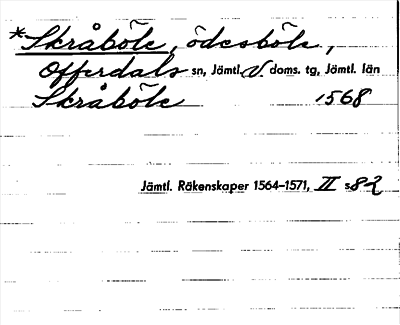 *Skråböle, ödesböle,
Offerdals sn, Jämtl. V. doms. tg, Jämtl. län
Skråböle 1568
Jämtl. Räkenskaper 1564-1571, II s. 82